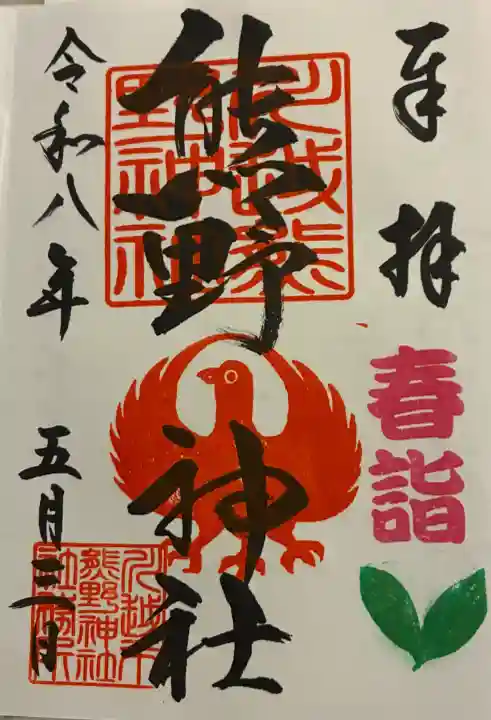 奉拝
春詣
熊野神社
川越熊
野神社
令和八年
五月三日
川越市
熊野神社